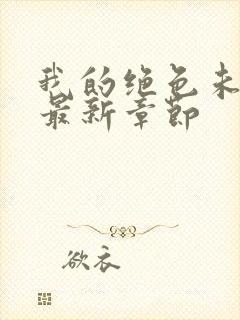 我的绝色未
最新章节
欲衣